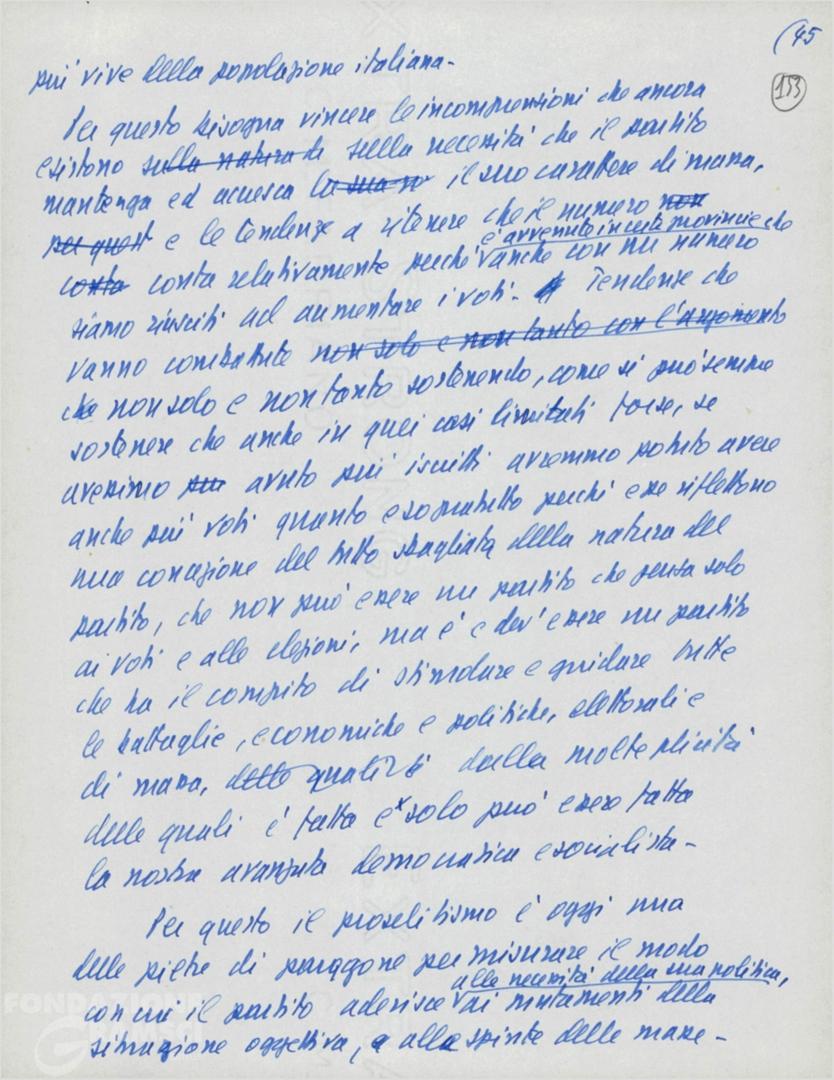 (45
153
più vive della popolazione italiana-
Per questo bisogna vincere le incomprensioni che ancora
esistono sulla natura de sulla necessità che il partito
mantenga ed accresca la sua il suo carattere di massa,
per quest e le tendenze a ritenere che il numero non
è avvenuto in certe provincie che
conta conta relativamente perché anche con un numero
siamo riusciti ad aumentare i voti- Tendenze che
vanno combattute non solo e non tanto con l'argomento
che non solo e non tanto sostenendo, come si può sempre
sostenere che anche in quei casi limitati forse, se
avessimo più avuto più iscritti avremmo potuto avere
anche più voti quanto e sopratutto perché esse riflettono
una concezione del tutto sbagliata della natura del
partito, che non può essere un partito che pensa solo
ai voti e alle elezioni, ma è e dev'essere un partito
che ha il compito di stimolare e guidare tutte
le battaglie, economiche e politiche, elettorali e
di massa, delle quali dalla molteplicità
delle quali è fatta e solo può essere fatta
la nostra avanzata democratica e socialista-
Per questo il proselitismo è oggi una
delle pietre di paragone per misurare il modo
alle necessità della sua politica,
con cui il partito aderisce ai mutamenti della
situazione oggettiva, e alle spinte delle masse-
FONDAZIONE
GRAMSCI